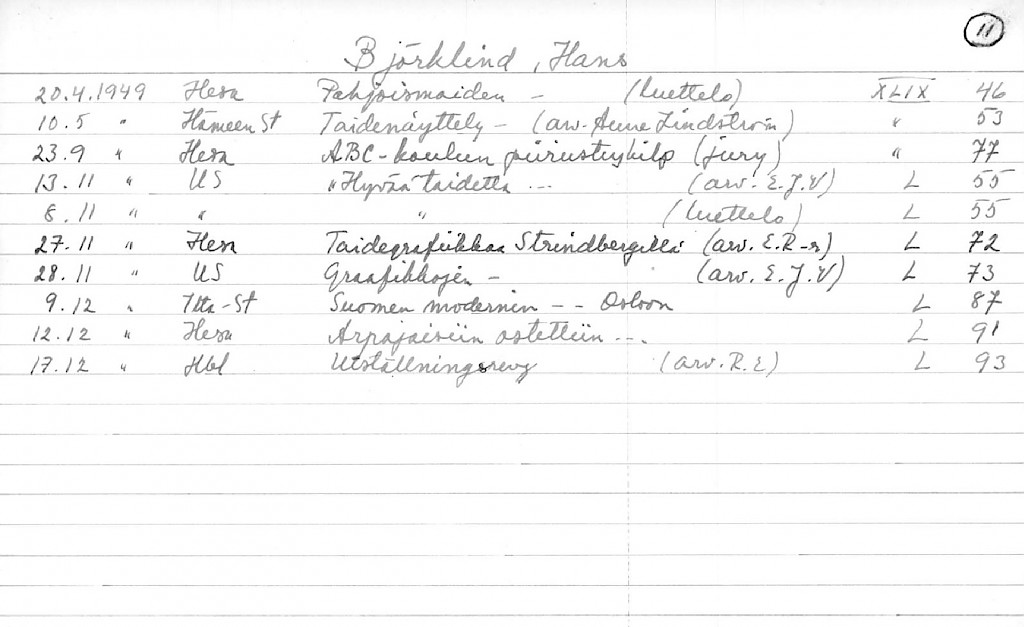 11
Björklind, Hans
20.4.1949 Hesa Pohjoismaiden - (luettelo) XLIX 46
10.5 " Hämeen St Taidenäyttely - (arv. Anne Lindström) " 53
23.9 " Hesa ABC-koulun piirustuskilp (jury) " 77
13.11 " US "Hyvää" taidetta ... (arv. E.J.V) L 55
8.11 " " " (luettelo) L 55
27.11 " Hesa Taidegrafiikkaa Strindbergillä (arv. E.R-r) L 72
28.11 " US Graafikkojen - (arv. E.J.V) L 73
9.12 " Ilta-St Suomen modernin - - Osloon L 87
12.12 " Hesa Arpajaisiin ostettiin ... L 91
17.12 " Hbl Utställningsrevy (arv. R.E) L 93